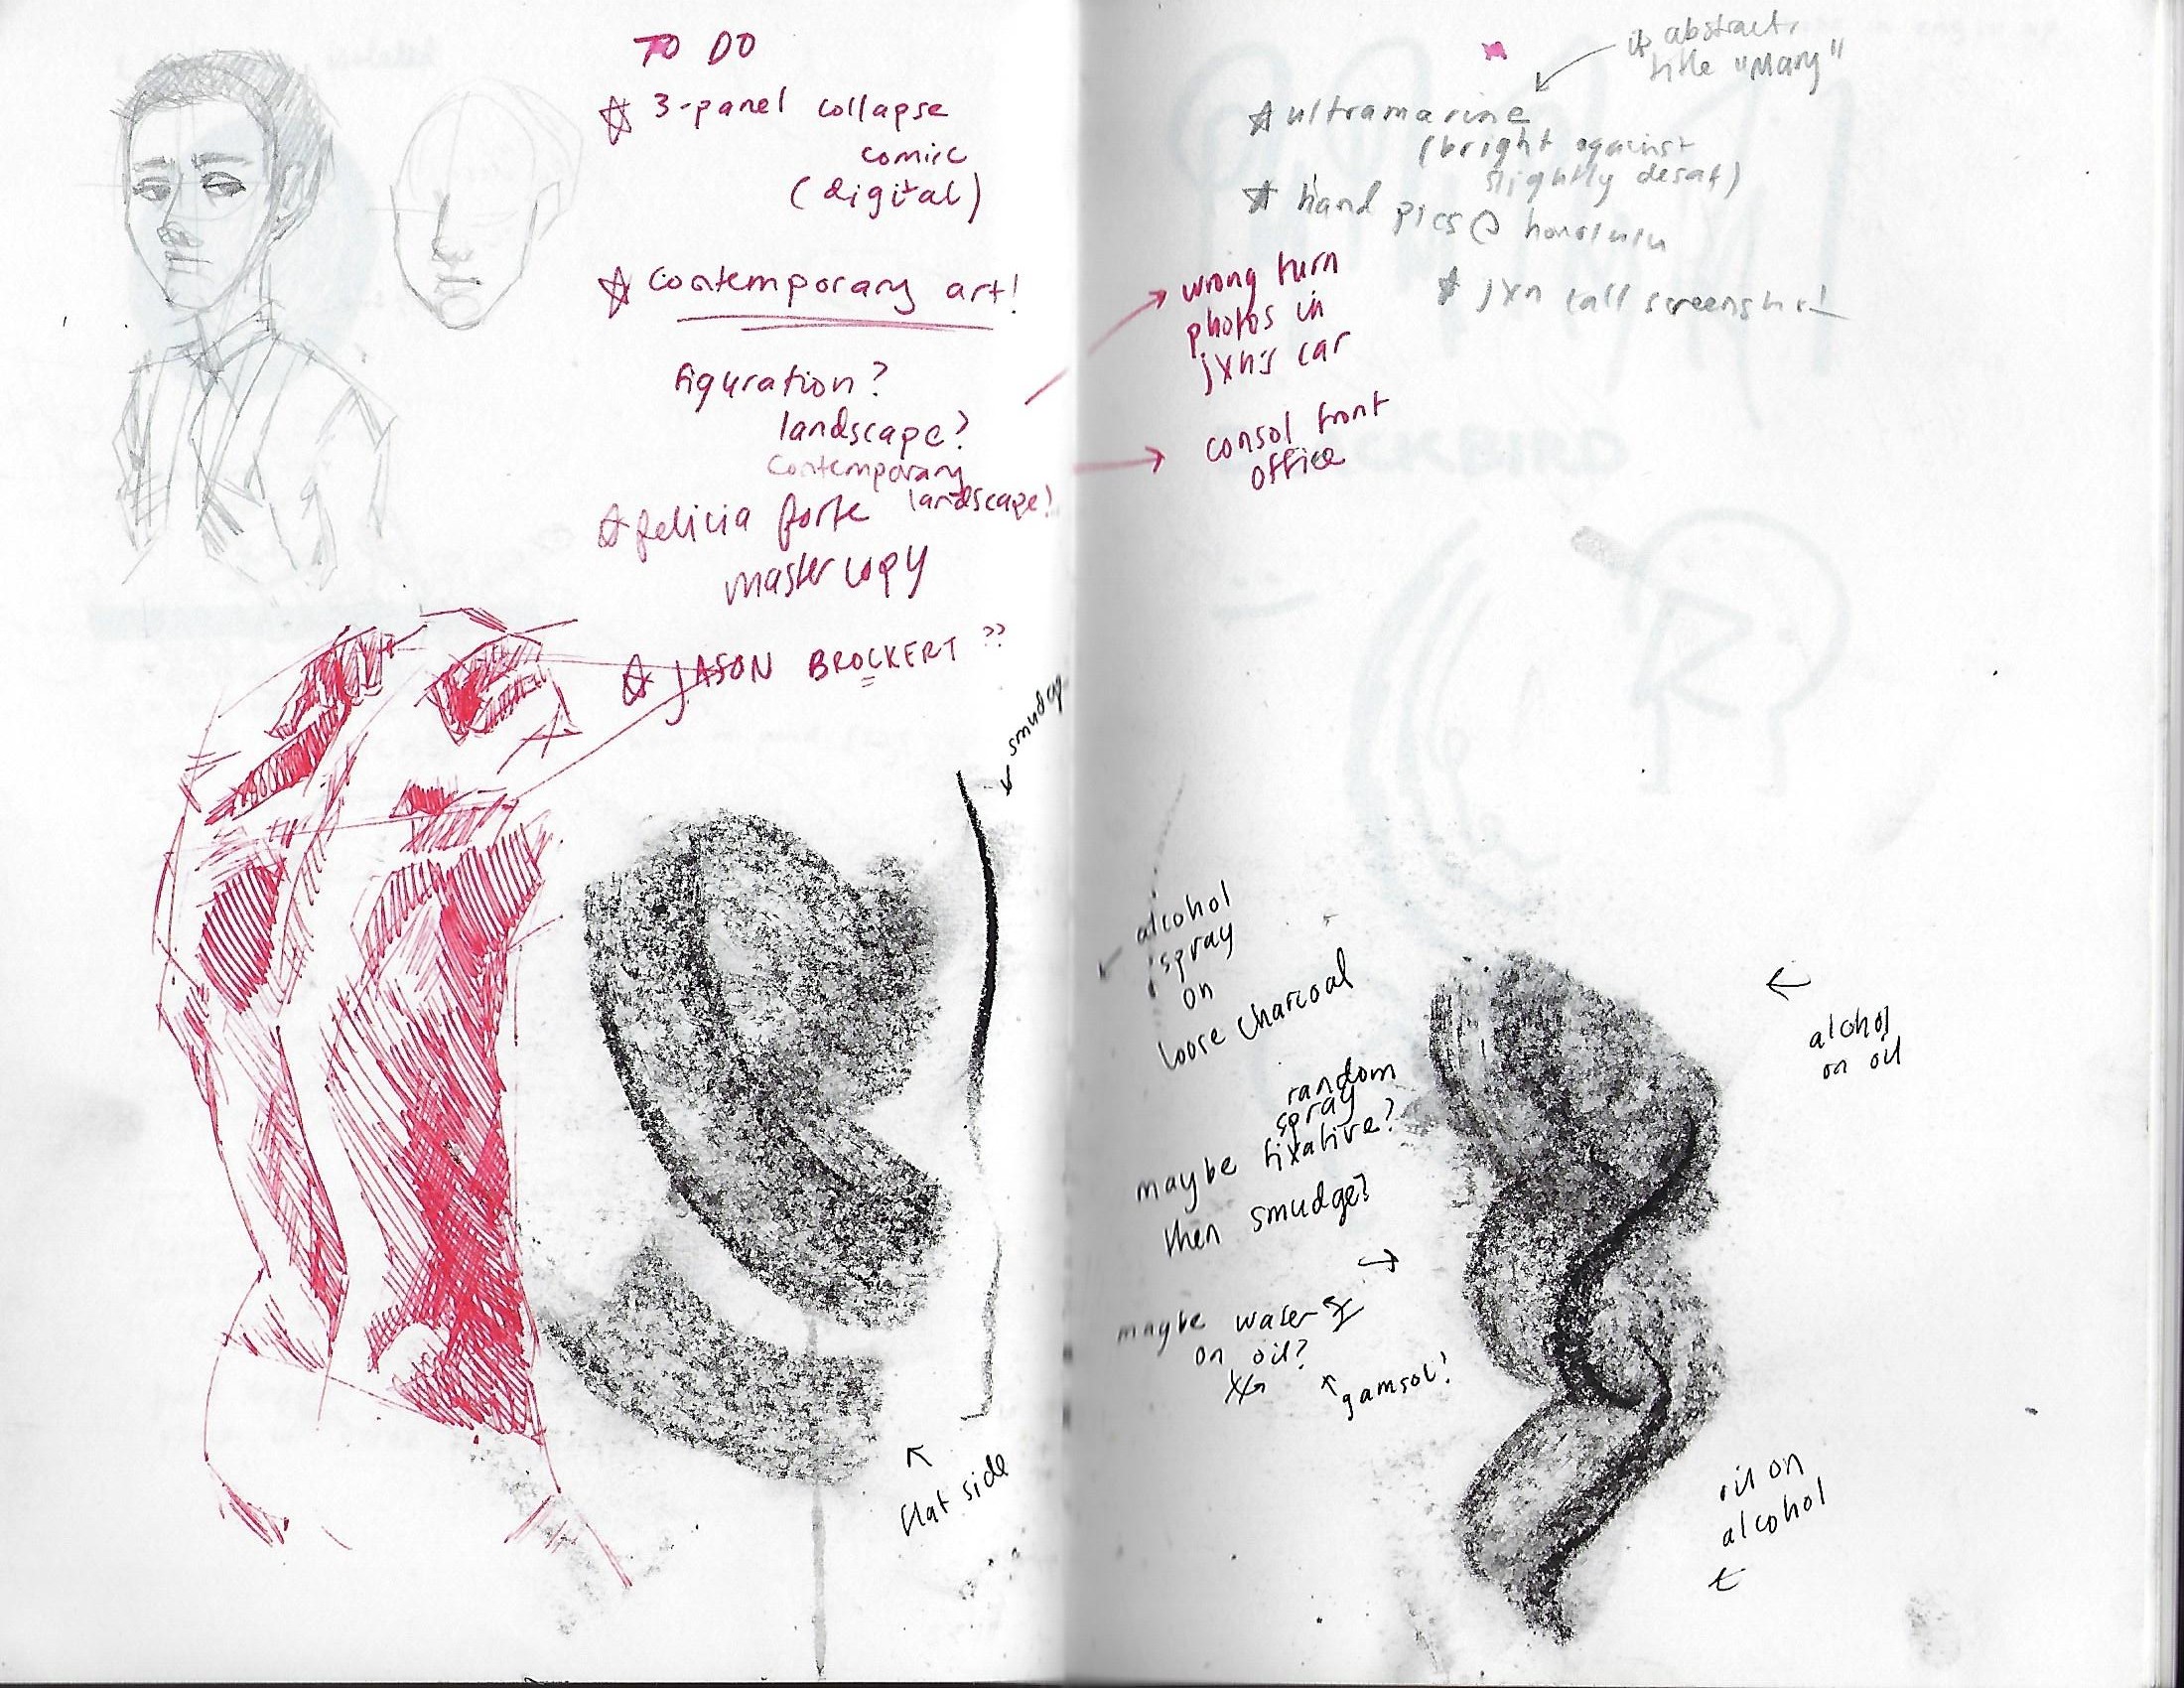 TO DO
☆ 3-panel collapse
comic
(digital)
☆ contemporary art!
figuration?
landscape?
contemporary
landscape!
☆ felicia forte
master copy
☆ JASON BROCKERT ??
smudge
flat side
if abstract,
title "Mary"
☆ ultramarine
(bright against
slightly desat)
☆ hand pics @ honolulu
☆ jxn call screenshot!
wrong turn
photos in
jxn's car
consol front
office
alcohol
spray
on
loose charcoal
random
spray
maybe fixative?
then smudge?
maybe water
on oil?
gamsol!
alcohol
on oil
oil on
alcohol